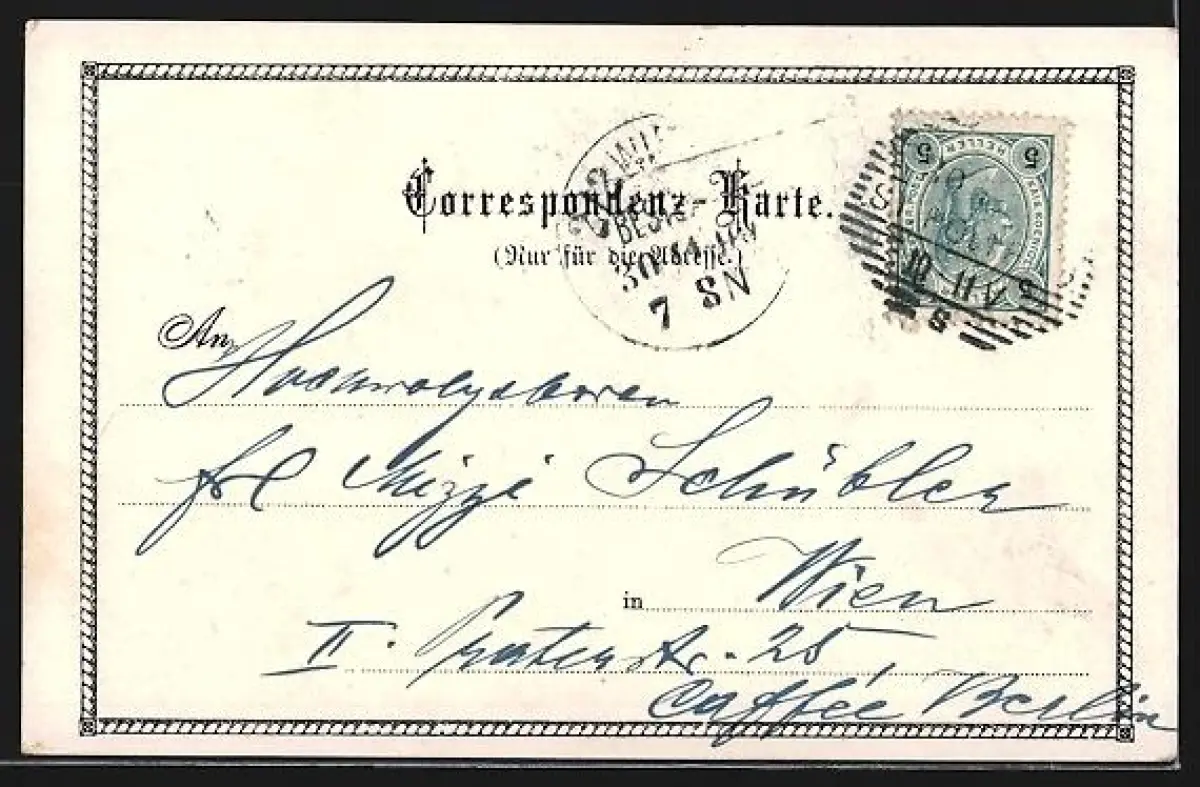 Correspondenz-Karte.
(Nur für die Adresse.)
BEST
30
7 8N
5 HELLER 5
An Hochwolgeboren
Frl Mizzi Schübler
in Wien
II. Praterstr. 25
Caffée Berlin